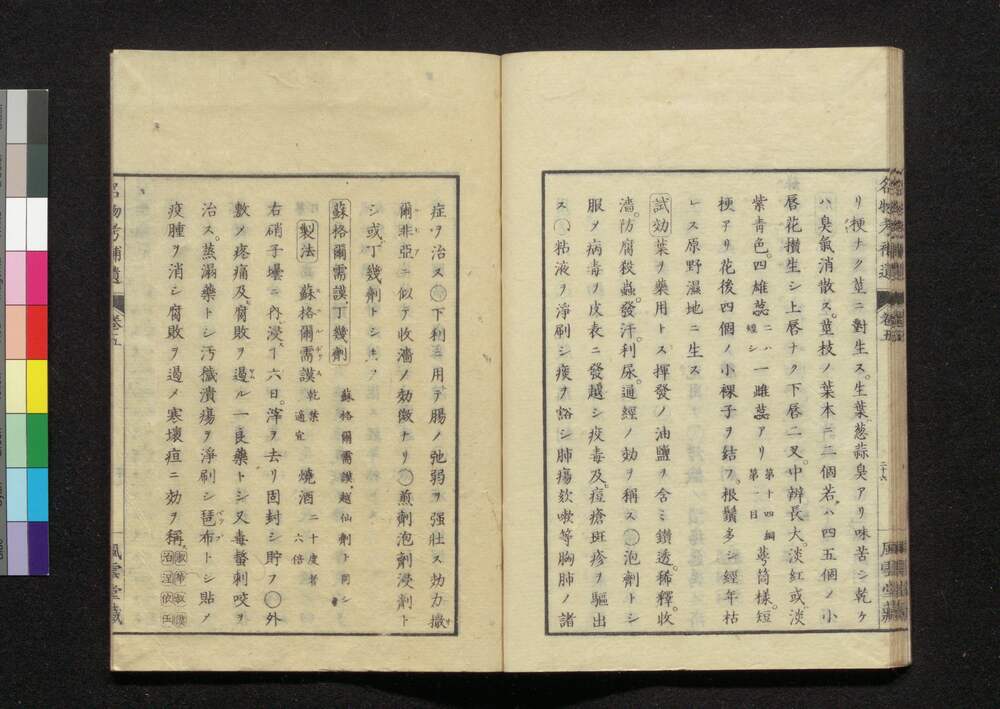 リ梗ナク莖ニ對生ス生葉葱蒜臭アリ味苦シ乾ケ
ハ臭氣消散ス莖枝ノ葉本ニ二個若ハ四五個ノ小
唇花攅生シ上唇ナク下唇二叉中辨長大淡紅或淡
紫青色四雄蕊二ハ短シ一雌蕊アリ第十四綱第一目萼筒様短
梗アリ花後四個ノ小裸子ヲ結フ根鬚多シ經年枯
レス原野濕地ニ生ス
試効葉ヲ藥用トス揮發ノ油鹽ヲ含ミ鑽透稀釋收
濇防腐殺蟲發汗利尿通經ノ効ヲ稱ス〇泡劑トシ
服ヲ病毒ノ皮表ニ發越シ疫毒及痘瘡斑疹ヲ驅出
ス〇粘液ヲ淨刷シ痰ヲ豁シ肺瘍欬嗽等胸肺ノ諸
名物考補遺 卷五 二十六 風雲堂藏
症ヲ治ス〇下利ニ用テ腸ノ弛弱ヲ强壮ス効力撒
爾非亞ニ似テ收濇ノ効微ナリ〇煎劑泡劑浸劑ト
シ或丁幾劑トシ用フ
蘇格爾需謨丁幾劑 蘇格爾需謨越仙劑ト同シ
製法 蘇格爾需謨乾葉適宜 燒酒二十度者六倍
右硝子壜ニ内浸スー六日滓ヲ去リ固封シ貯フ〇外
敷メ疼痛及腐敗ヲ遏ル一良藥トシ又毒螫刺咬ヲ
治ス蒸溻藥トシ汚穢潰瘍ヲ淨刷シ琶布トシ貼メ
疫腫ヲ消シ腐敗ヲ遏メ寒壊疽ニ効ヲ稱ス
名物考補遺 卷五 風雲堂藏